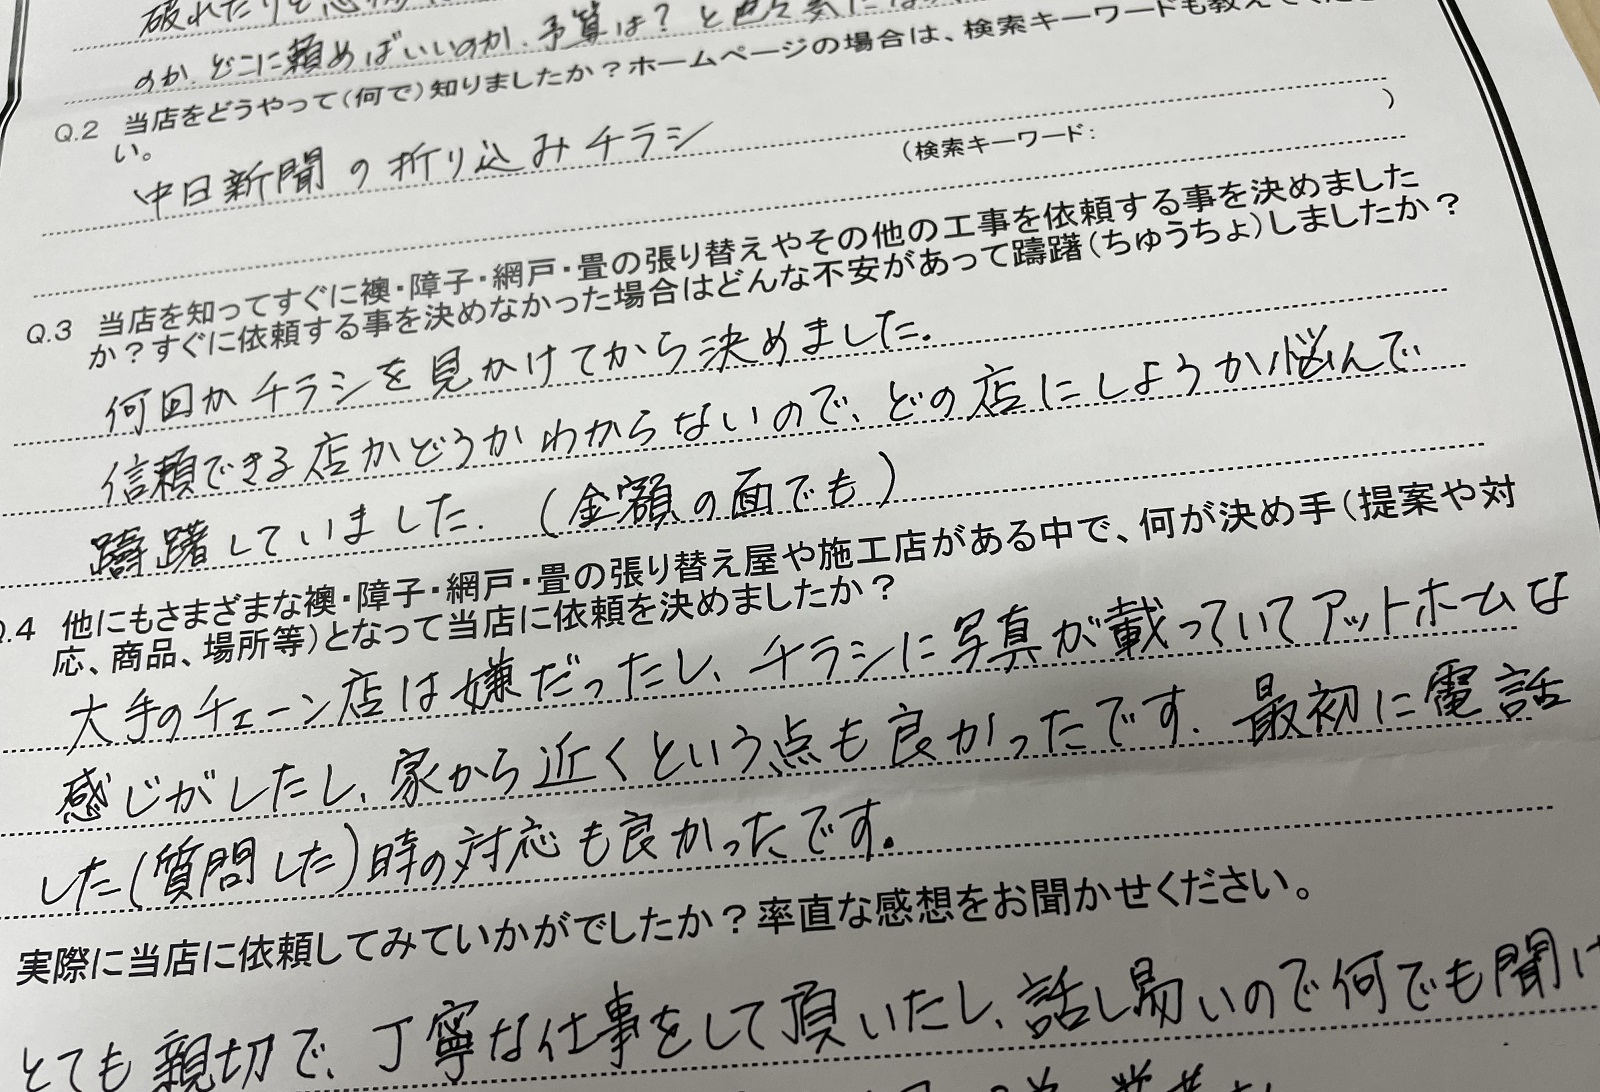 破れたりと
のか、どこに頼めばいいのか、予算は?と色々気に
Q.2 当店をどうやって(何で)知りましたか?ホームページの場合は、検索キーワードも教えてくださ
い。
中日新聞の折り込みチラシ
(検索キーワード: )
Q.3 当店を知ってすぐに襖・障子・網戸・畳の張り替えやその他の工事を依頼する事を決めました
か?すぐに依頼する事を決めなかった場合はどんな不安があって躊躇(ちゅうちょ)しましたか?
何回かチラシを見かけてから決めました。
信頼できる店かどうかわからないので、どの店にしようか悩んで
躊躇していました。(金額の面でも)
Q.4 他にもさまざまな襖・障子・網戸・畳の張り替え屋や施工店がある中で、何が決め手(提案や対
応、商品、場所等)となって当店に依頼を決めましたか?
大手のチェーン店は嫌だったし、チラシに写真が載っていてアットホームな
感じがしたし、家から近くという点も良かったです。最初に電話
した(質問した)時の対応も良かったです。
実際に当店に依頼してみていかがでしたか?率直な感想をお聞かせください。
とても親切で、丁寧な仕事をして頂いたし、話し易いので何でも聞け